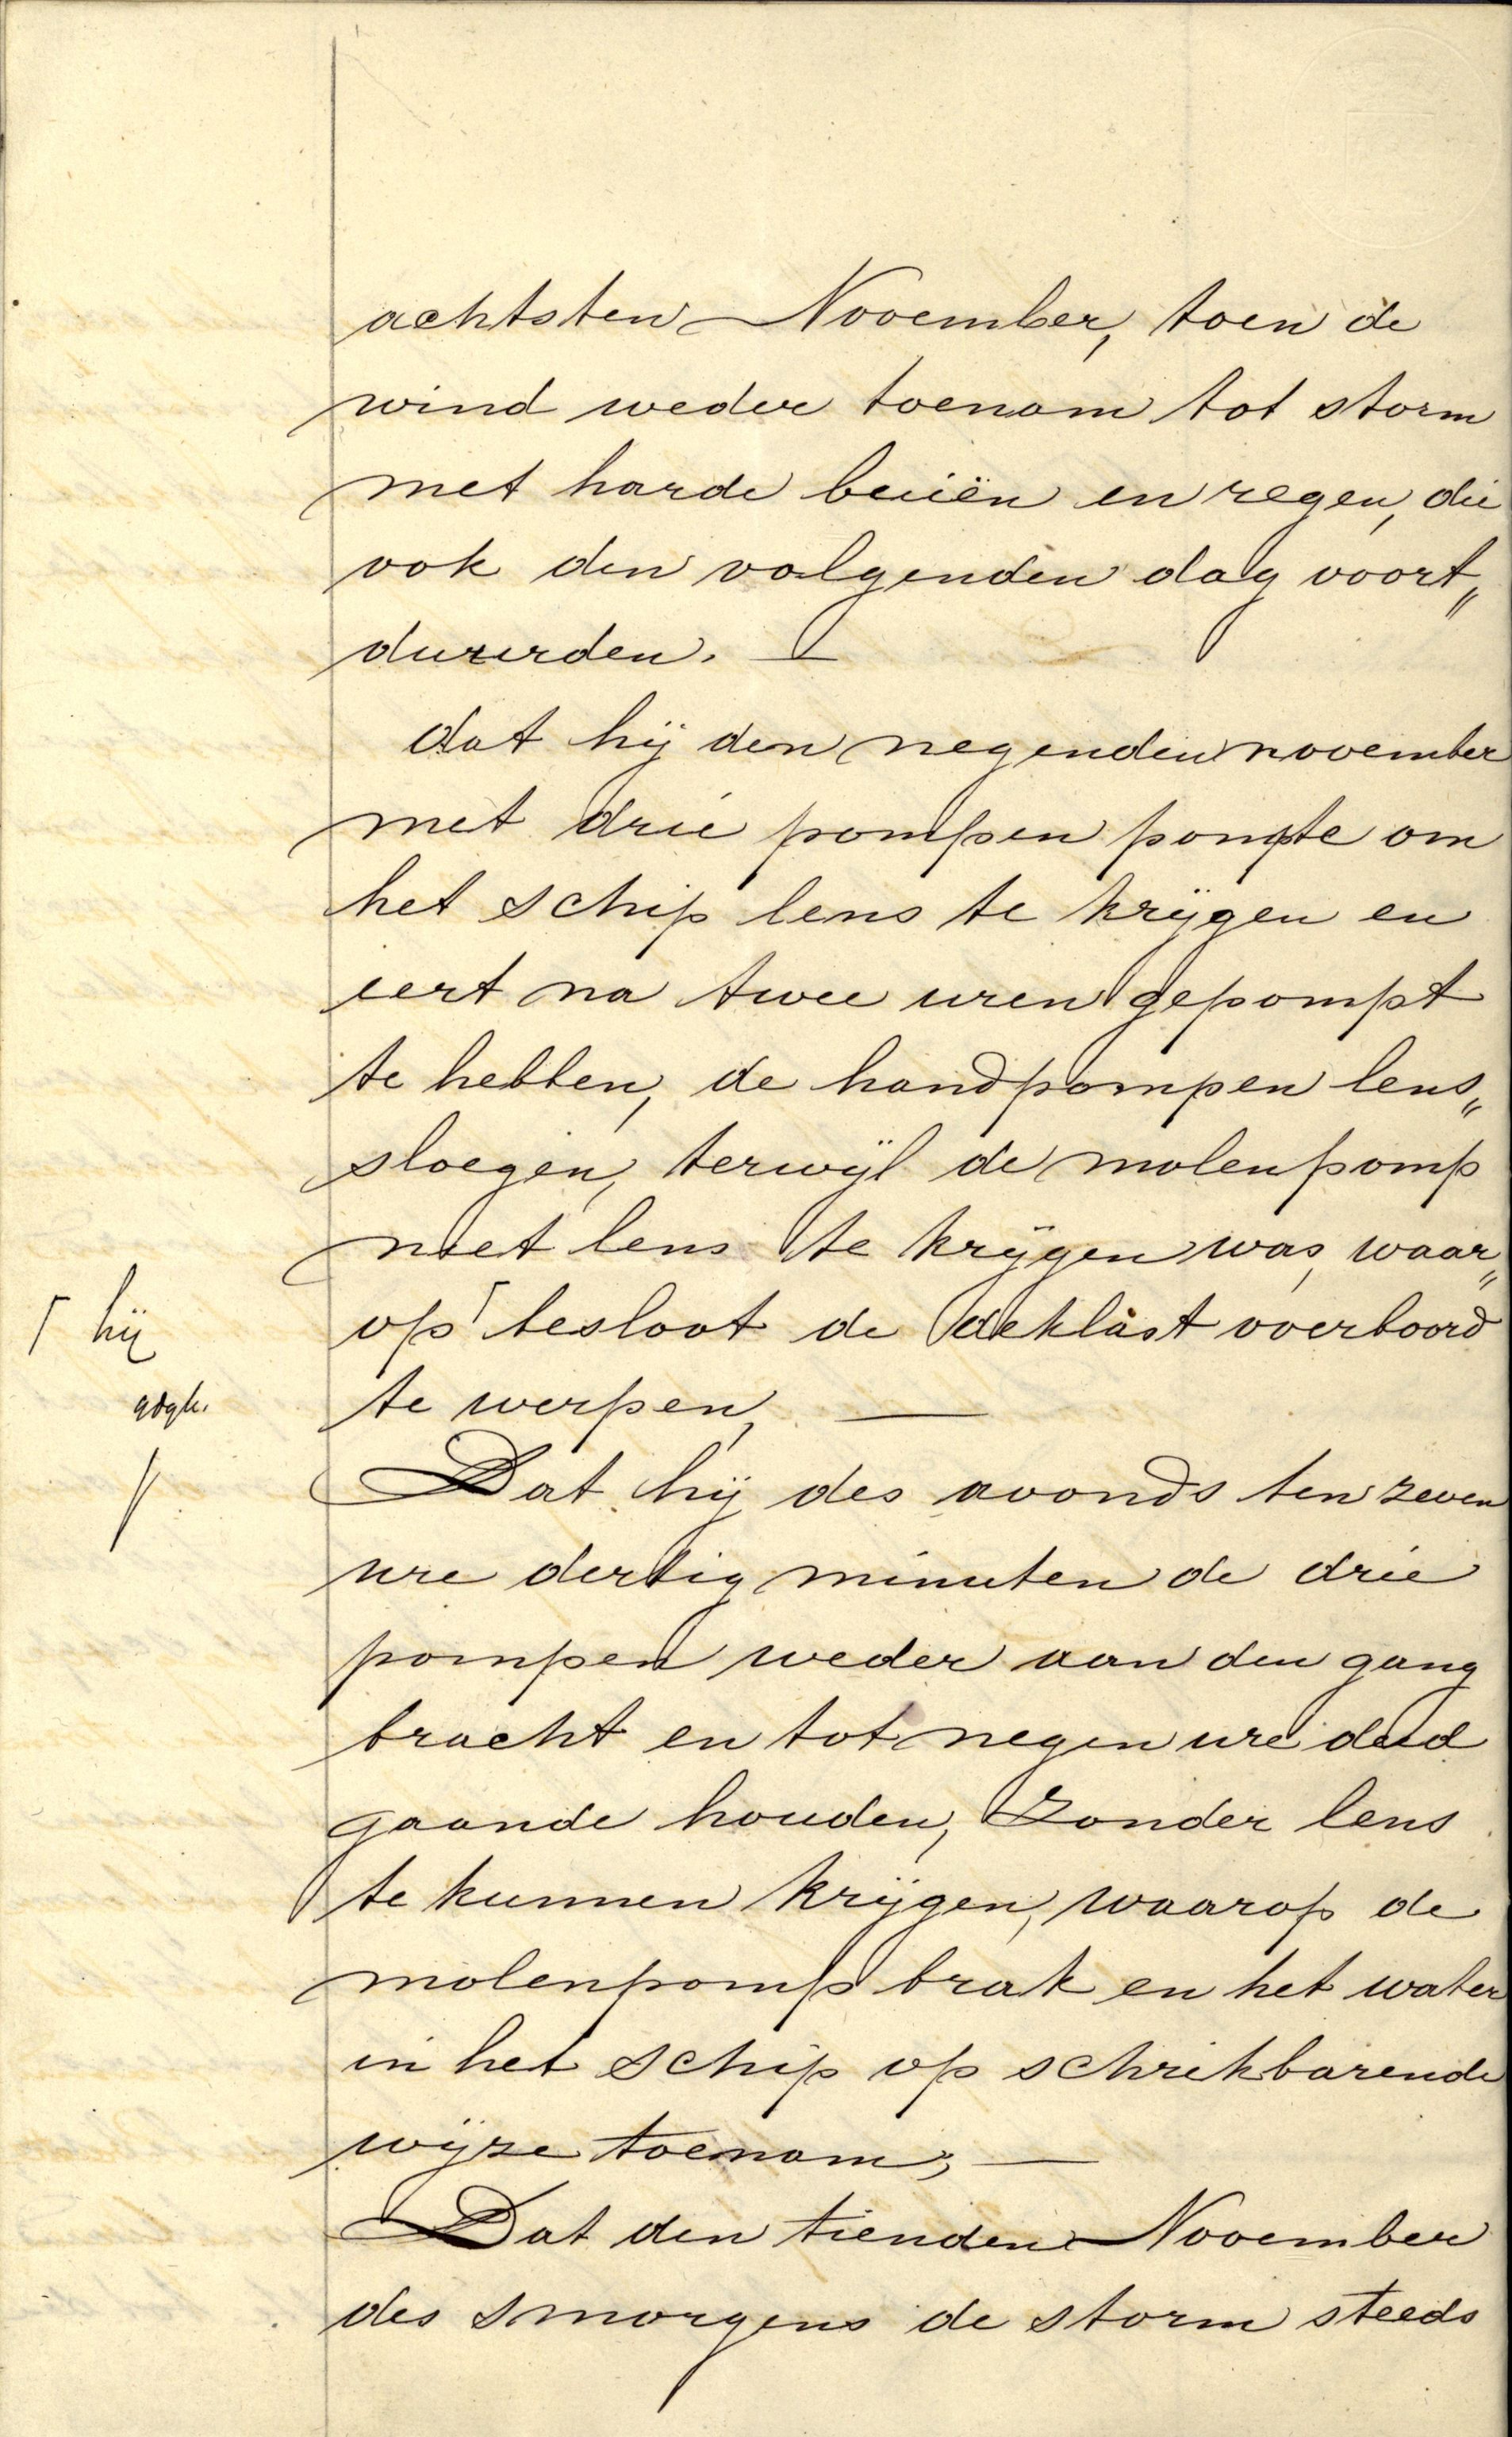 achtsten November, toen de
wind weder toenam tot storm
met harde buiën en regen, die
ook den volgenden dag voort„
duurden. —
dat hij den negenden november
met drie pompen pompte om
het schip lens te krijgen en
eert na twee uren gepompt
te hebben, de handpompen lens„
sloegen, terwijl de molenpomp
niet lens te krijgen was, waar„
op ┌ besloot de deklast overboord
te werpen, —
┌ hij
Dat hij des avonds ten zeven
ure dertig minuten de drie
pompen weder aan den gang
bracht en tot negen ure deed
gaande houden, zonder lens
te kunnen krijgen, waarop de
molenpomp brak en het water
in het schip op schrikbarende
wijze toenam; —
Dat den tienden November
des smorgens de storm steeds